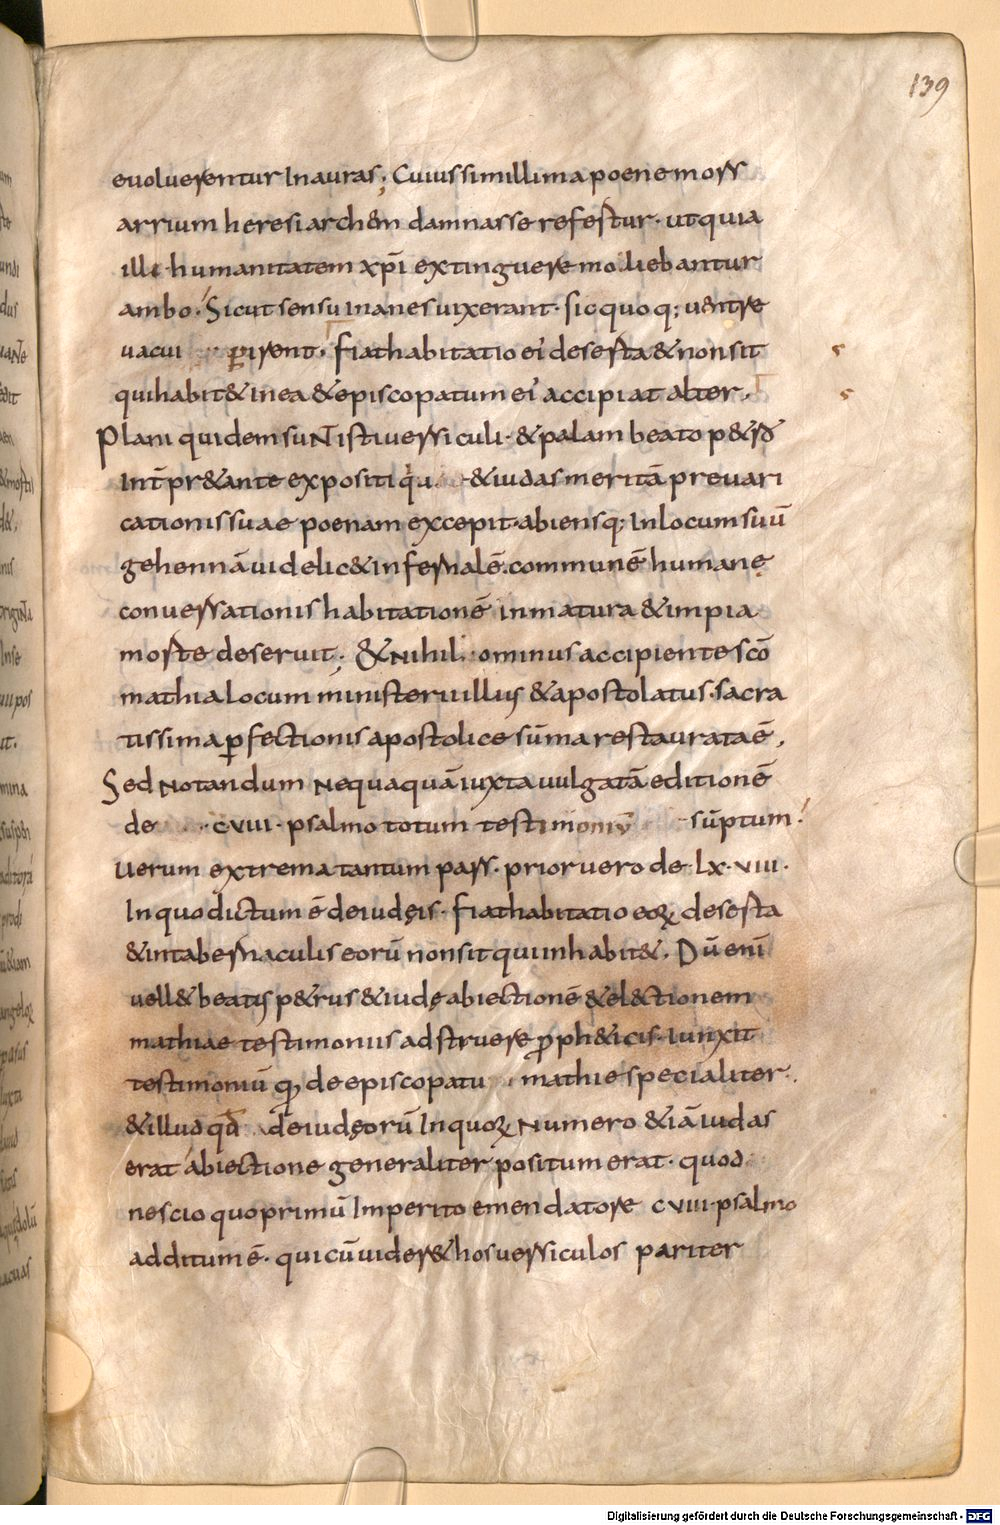 139
euoluerentur Inauras; Cuius simillima poene mors
arrium heresiarch&n damnasse refertur· ut quia
illi humanitatem xp̄i extinguere moliebantur
ambo· Sicut sensu Inanes uixerant· sic quoq; uentre
uacui ꝑirent· fiat habitatio ei' deserta & non sit
qui habit& in ea & episcopatum ei' accipiat alter,
Plani quidem suNt isti uersiculi· & palam beato p&ro
Int̄pr&ante expositi & iudas meritā preuari
cationis suae poenam excepit· abiensq; In locum suū
gehennā uidelic& Infernalē· commune͂ humanę
conuersationis habitationē inmatura & impia
morte deseruit; & Nihil ominus accipiente sc̄o
mathia locum ministerii illius & apostolatus· sacra
tissima ꝑfectionis apostolice sūma restaurata ē,
Sed Notandum Nequaquā iuxta uulgatā editionē
de cviii· psalmo totum testimoniū sūptum·
Uerum extrema tantum pars· prior uero de· lx·viii·
In quo dictum ē de iudęis· fiat habitatio eoꝝ deserta
& in tabernaculis eorū non sit qui inhabit&. Dū enī
uell& beatus p&rus & iudę abiectionē & el&ctionem
mathiae testimoniis adstruere ꝓph&icis· Iunxit
testimoniū qđ de episcopatu mathie specialiter·
& illud qđ de iudęorū In quoꝝ Numero & iā iudas
erat abiectione generaliter positum erat· quod
nescio quo primū Imperito emendatore cviii· psalmo
additum ē· qui cū uider& hos uersiculos pariter
Digitalisierung gefördert durch die Deutsche Forschungsgemeinschaft - DFG